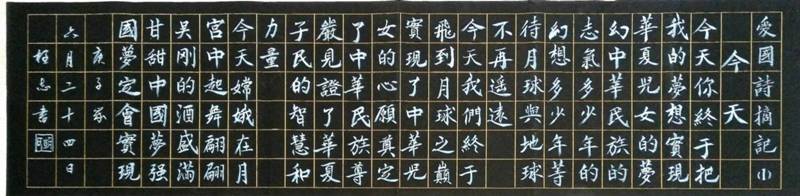 愛國詩摘記 小
今天
今天你終于把
我的夢想實現
華夏兒女的夢
幻中華民族的
志氣多少年的
幻想多少年等
待月球與地球
不再遥遠
今天我們終于
飛到月球之巔
實現了中華兒
女的心願奠定
了中華民族尊
嚴見證了華夏
子民的智慧和
力量
今天嫦娥在月
宫中起舞翩翩
吴剛的酒盛滿
甘甜中國夢强
國夢定會實現
庚子
六月二十四日
書